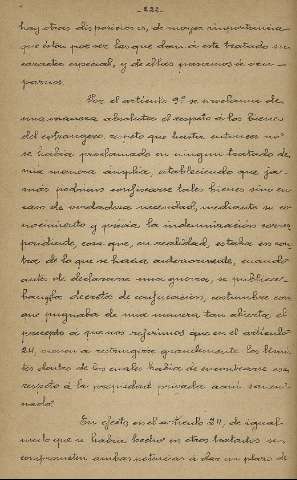 -222-
hay otras disposiciones, de mayor importancia
que están por ser las que dan a este tratado un
carácter especial, y de ellas pasamos á ocu-
parnos.
Por el artículo 9º se proclama de
una manera absoluta el respeto á los bienes
del extrangero, respeto que hasta entonces no
se había proclamado en ningun tratado de
una manera amplia, estableciendo que ja-
más podrían confiscarse tales bienes sino en
caso de verdadera necesidad, mediante su co-
nocimiento y previa la indemnización corres-
pondiente, cosa que, en realidad, estaba en con-
tra de lo que se hacía anteriormente, cuando
antes de declararse una guerra, se publica-
ban los decretos de confiscación, costumbre con
que pugnaba de una manera tan abierta el
precepto a que nos referimos que en el artículo
24, vienen a restringirse grandemente los lími-
tes dentro de los cuales había de encontrarse ese
respeto á la propiedad privada aquí
En efecto, en el artículo 24, de igual
modo que se había hecho en otros tratados se
comprometen ambas potencias á dar un plazo de